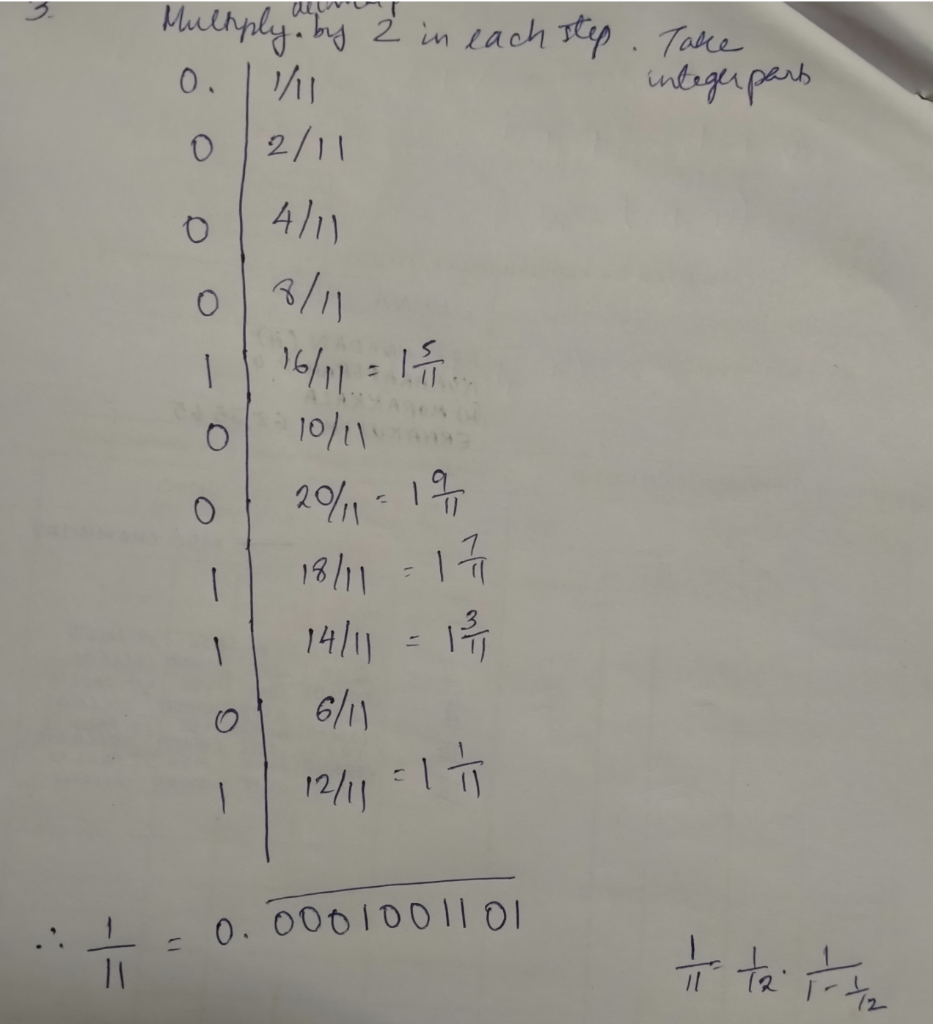 3.
Multiply. by 2 in each step. Take
integer part
0. 1/11
0 2/11
0 4/11
0 8/11
1 16/11 = 1 5/11
0 10/11
0 20/11 = 1 9/11
1 18/11 = 1 7/11
1 14/11 = 1 3/11
0 6/11
1 12/11 = 1 1/11
∴ 1/11 = 0. 0001001101
1/11 = 1/12 · 1/(1 - 1/12)